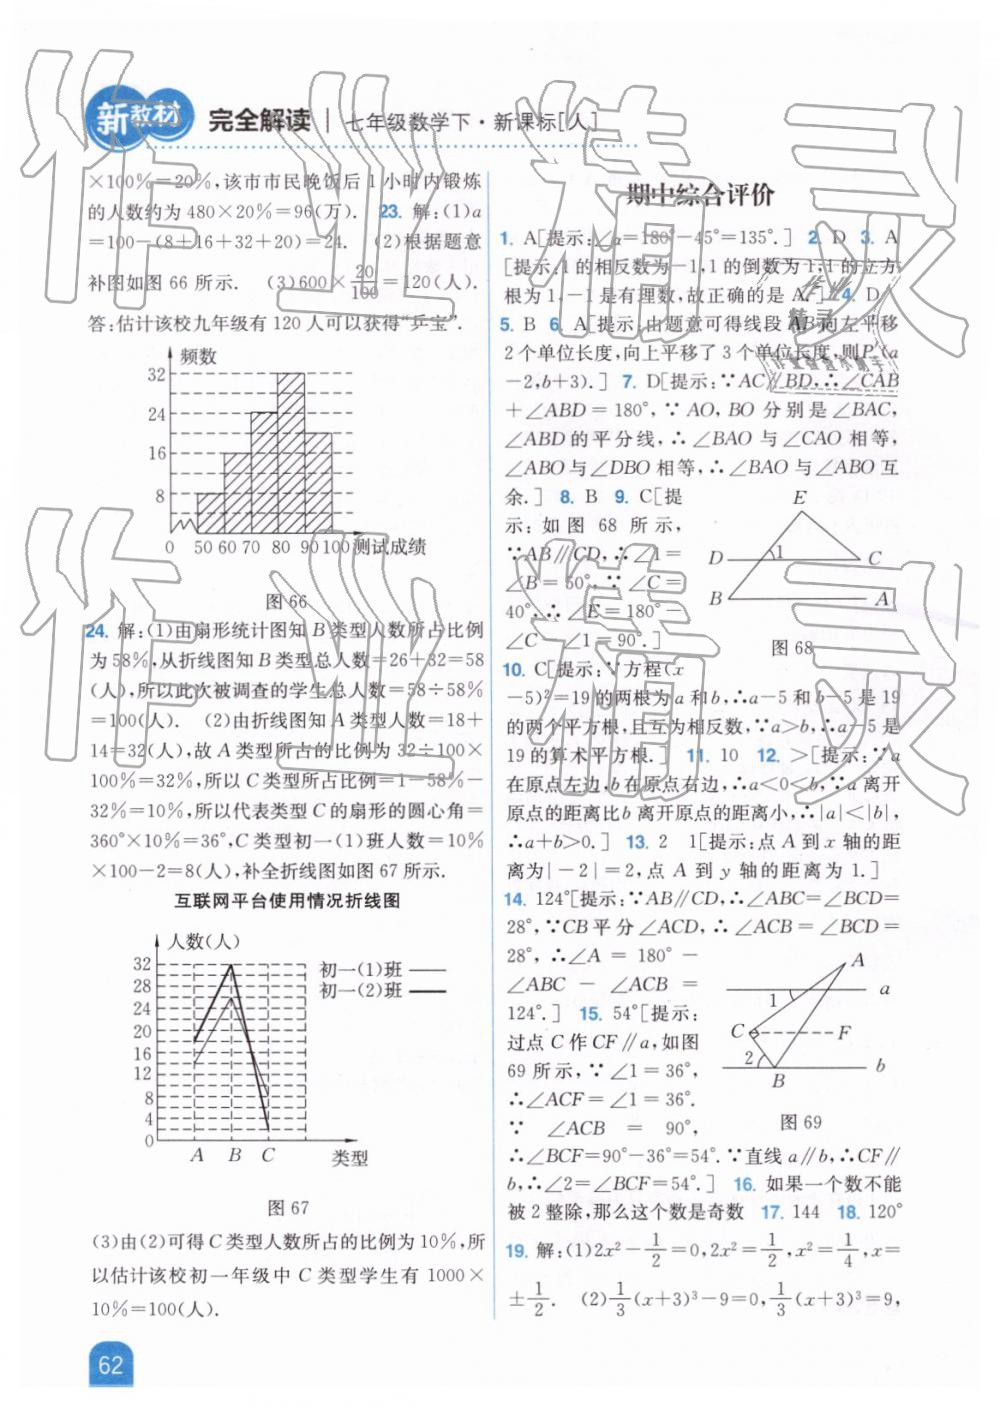 新教材 完全解读 | 七年级数学下·新课标[人]
×100%=20%,该市市民晚饭后1小时内锻炼
的人数约为480×20%=96(万). 23. 解:(1)a
=100-(8+16+32+20)=24. (2)根据题意
补图如图66所示. (3)600×20/100=120(人).
答:估计该校九年级有120人可以获得“乒宝”.
频数
32
24
16
8
0 50 60 70 80 90 100 测试成绩
图66
24. 解:(1)由扇形统计图知B类型人数所占比例
为58%,从折线图知B类型总人数=26+32=58
(人),所以此次被调查的学生总人数=58÷58%
=100(人). (2)由折线图知A类型人数=18+
14=32(人),故A类型所占的比例为32÷100×
100%=32%,所以C类型所占比例=1-58%-
32%=10%,所以代表类型C的扇形的圆心角=
360°×10%=36°,C类型初一(1)班人数=10%
×100-2=8(人),补全折线图如图67所示.
互联网平台使用情况折线图
人数(人)
32
28
24
20
16
12
8
4
0
初一(1)班
初一(2)班
A B C 类型
图67
(3)由(2)可得C类型人数所占的比例为10%,所
以估计该校初一年级中C类型学生有1000×
10%=100(人).
62
期中综合评价
1. A[提示:∠α=180°-45°=135°.] 2. D 3. A
[提示:1的相反数为-1,1的倒数为1,1的立方
根为1,-1是有理数,故正确的是A.] 4. D
5. B 6. A[提示:由题意可得线段AB向左平移
2个单位长度,向上平移了3个单位长度,则P′(a
-2,b+3).] 7. D[提示:∵AC∥BD,∴∠CAB
+∠ABD=180°,∵AO,BO分别是∠BAC,
∠ABD的平分线,∴∠BAO与∠CAO相等,
∠ABO与∠DBO相等,∴∠BAO与∠ABO互
余.] 8. B 9. C[提
示:如图68所示,
∵AB∥CD,∴∠1=
∠B=50°,∵∠C=
40°,∴∠E=180°-
∠C-∠1=90°.]
E
D 1 C
B A
图68
10. C[提示:∵方程(x
-5)²=19的两根为a和b,∴a-5和b-5是19
的两个平方根,且互为相反数,∵a>b,∴a-5是
19的算术平方根.] 11. 10 12. >[提示:∵a
在原点左边,b在原点右边,∴a<0<b,∵a离开
原点的距离比b离开原点的距离小,∴|a|<|b|,
∴a+b>0.] 13. 2 1[提示:点A到x轴的距
离为|-2|=2,点A到y轴的距离为1.]
14. 124°[提示:∵AB∥CD,∴∠ABC=∠BCD=
28°,∵CB平分∠ACD,∴∠ACB=∠BCD=
28°,∴∠A=180°-
∠ABC-∠ACB=
124°.] 15. 54°[提示:
过点C作CF∥a,如图
69所示,∵∠1=36°,
∴∠ACF=∠1=36°.
∵∠ACB=90°,
A
1 a
C F
2 b
B
图69
∴∠BCF=90°-36°=54°.∵直线a∥b,∴CF∥
b,∴∠2=∠BCF=54°.] 16. 如果一个数不能
被2整除,那么这个数是奇数 17. 144 18. 120°
19. 解:(1)2x²-1/2=0,2x²=1/2,x²=1/4,x=
±1/2. (2)1/3(x+3)³-9=0,1/3(x+3)³=9,
作业精灵
作业精灵
精灵